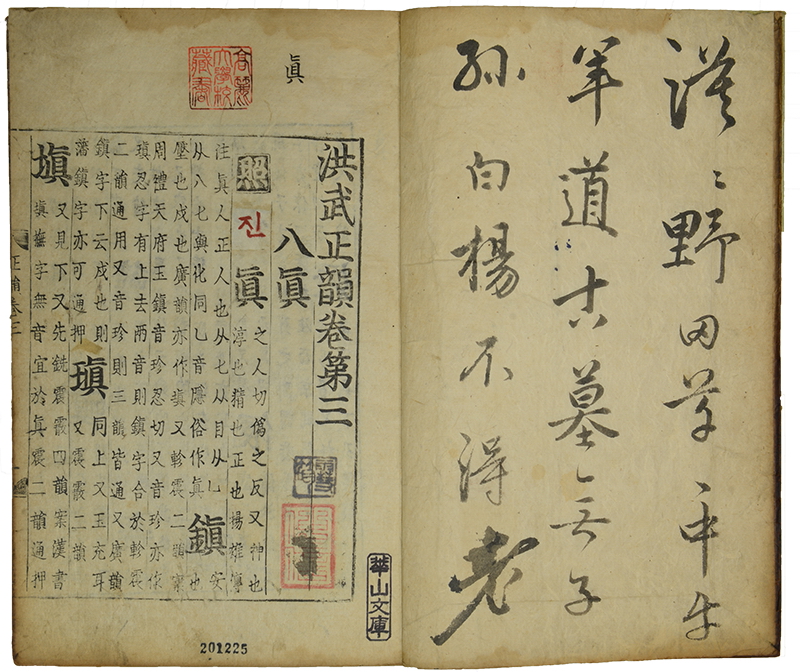 漠〻野田草〻中牛
羊道古墓無子
孫白楊不得老
眞
高麗
大學校
藏書
洪武正韻卷第三
八眞
照
진
眞 之人切僞之反又神也
淳也精也正也楊雄
注眞人正人也从匕从目从乚
从八匕與化同乚音隱俗作眞
鎭 安
也
壓也戍也廣韻亦作塡又軫震二韻案
周禮天府玉鎭音珍忍切又音珍亦作
瑱忍字有上去兩音則鎭字合於軫震
二韻通用又音珍則三韻皆通又廣韻
鎭字下云戍也則
藩鎭字亦可通押
瑱 同上又玉充耳
又震霰二韻
塡 又見下又先銑震霰四韻案漢書
塡撫字無音宜於眞震二韻通押
正韻卷三
華山文庫
201225